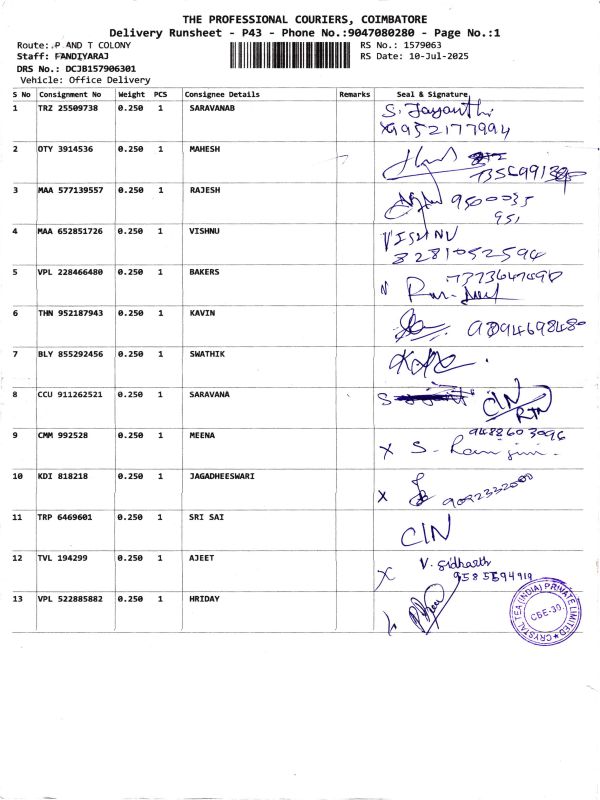 THE PROFESSIONAL COURIERS, COIMBATORE
Delivery Runsheet - P43 - Phone No.:9047080280 - Page No.:1
Route: P AND T COLONY
RS No.: 1579063
Staff: PANDIYARAJ
RS Date: 10-Jul-2025
DRS No.: DCJB157906301
Vehicle: Office Delivery
S No Consignment No Weight PCS Consignee Details Remarks Seal & Signature
1 TRZ 25509738 0.250 1 SARAVANAB S. Jayanthi
9952177994
2 OTY 3914536 0.250 1 MAHESH
3 MAA 577139557 0.250 1 RAJESH 9500035
951
4 MAA 652851726 0.250 1 VISHNU VISHNU
82281052594
5 VPL 228466480 0.250 1 BAKERS 7373647490
6 THN 952187943 0.250 1 KAVIN
7 BLY 855292456 0.250 1 SWATHIK
8 CCU 911262521 0.250 1 SARAVANA S CIN
RTN
9 CMM 992528 0.250 1 MEENA 9488603096
X S.
10 KDI 818218 0.250 1 JAGADHEESWARI X 9092332000
11 TRP 6469601 0.250 1 SRI SAI CIN
12 TVL 194299 0.250 1 AJEET V. Sidharth
X 9585594919
13 VPL 522885882 0.250 1 HRIDAY
CRYSTAL TEA (INDIA) PRIVATE LIMITED
CBE-30